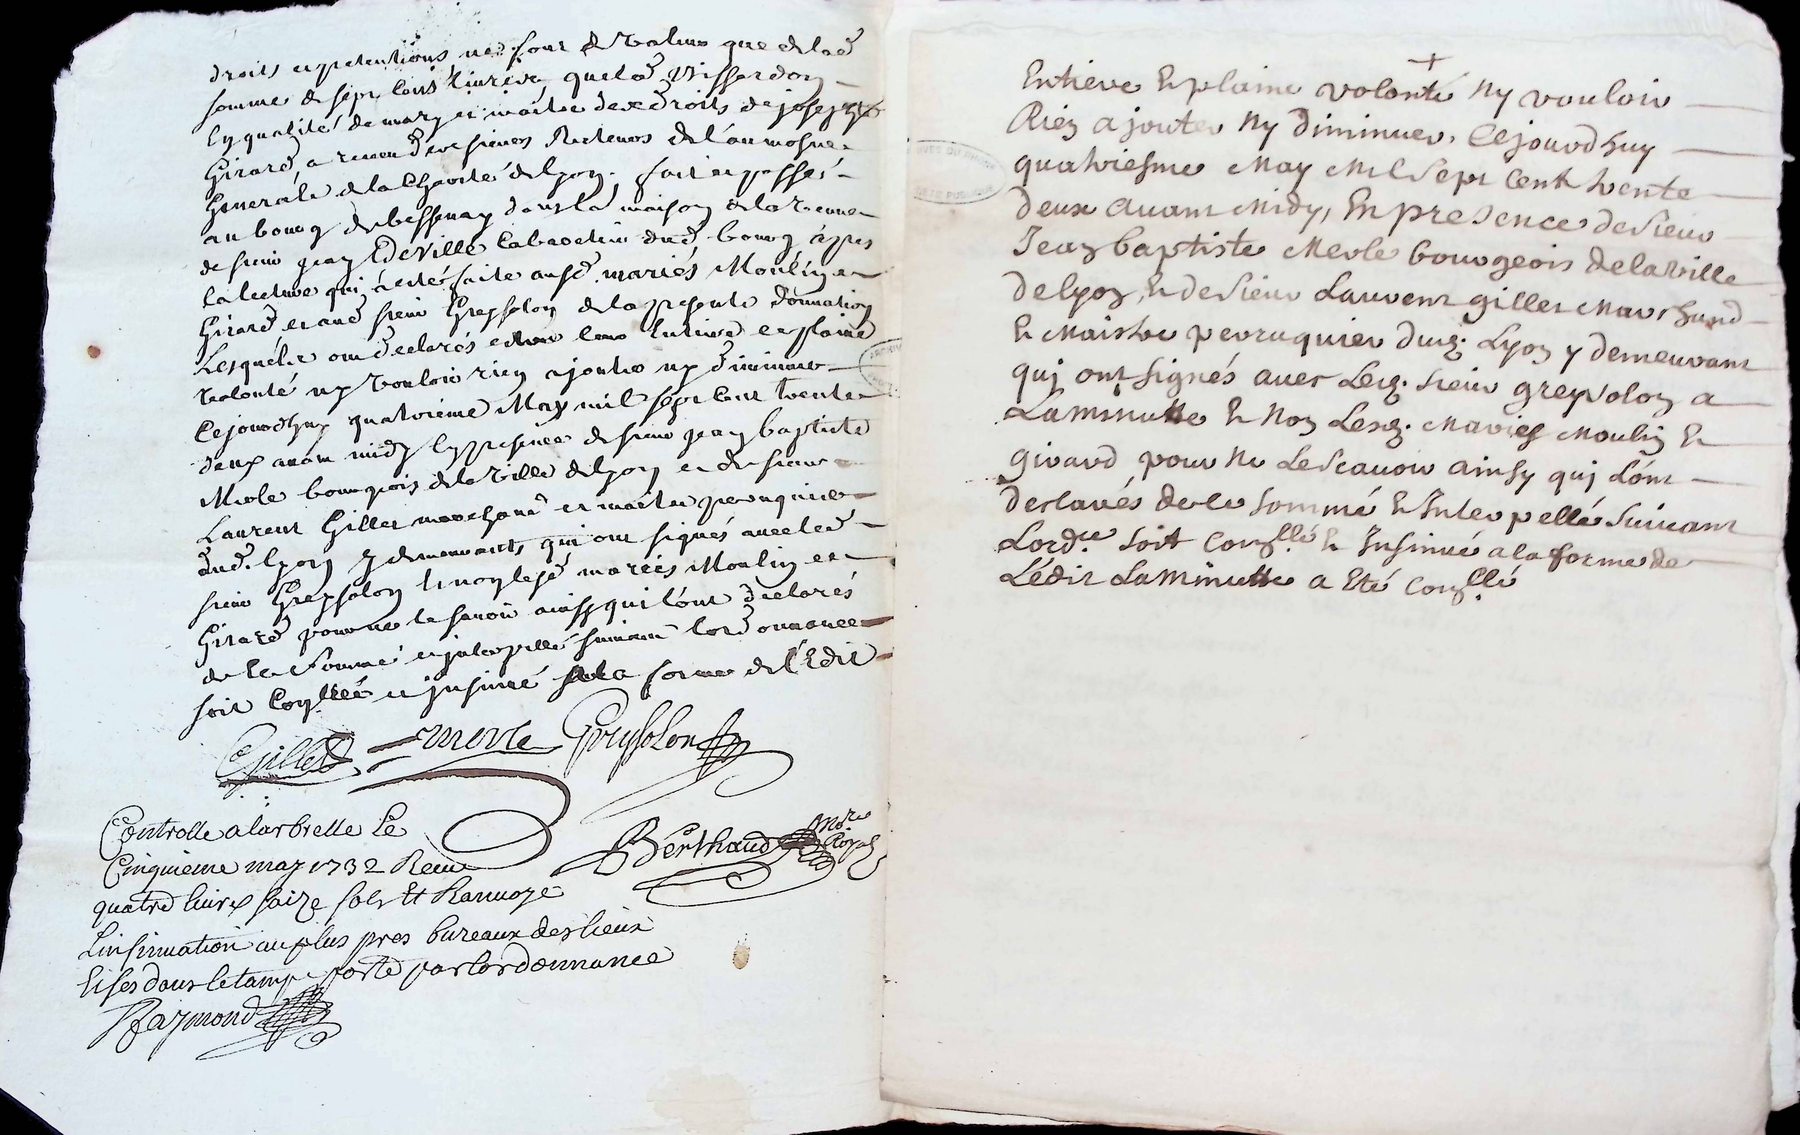 droits et pretentions ne sont de valeur que de lad
somme de sept cent livres que led Vissardon
en qualité de mary et maitre des droits de joseph
Girard, a recu des sieurs Recteurs de l'aumosne
Generale de la Charité de lyon. fait et passé
au bourg de bessenay dans la maison de la veuve
de sieur jean Deville cabaretier dud. bourg après
la lecture qui à eté faite ausd. mariés Moulin et
Girard et aud sieur Greysolon de la presente donnation
Lesquels ont declarés estre leur entiere et plaine
volonté ny vouloir rien ajouter ny diminuer
Cejourdhuy quatrieme May mil sept cent trente
deux avant midy en presence de sieur jean baptiste
Merle bourgeois de la ville de lyon et de sieur
Laurent Gilles marchand et maitre peruquier
dud. lyon y demeurants qui ont signés avec led
sieur Greysolon et non lesd mariés Moulin et
Girard pour ne le savoir ainsy qui l'ont declarés
de le sommé et interpellé suivant lordonnance
soit Conllé et insinué a la forme de l'Edit
Gilles Merle Greysolon
Controlle a larbrelle Le
Cinquieme may 1732 Recu
quatre livres saize sols Et Ranvoye
Linsinuation au plus pres bureaux des lieux
Bérthaud nore Royal
Raymond
Entiere En plaine volonté Ny vouloir
Rien ajouter Ny Diminuer, Cejourdhuy
quatriesme May Mil Sept Cent trente
deux avant Midy, En presence de Sieur
Jean baptiste Merle bourgeois de la ville
de Lyon, Et de Sieur Laurent gilles Marchand
Et Maistre peruquier dud. Lyon y demeurant
qui ont signés avec Led. Sieur greysolon a
La Minutte Et Non Lesd. Mariés Moulin Et
girard pour Ne Le Scauoir ainsy qui L'ont
declarés de le Sommé Et Interpellé Suivant
Lord.ce Soit Con.llé Et Insinué a la forme de
L'édit La Minutte a Eté Con.llé